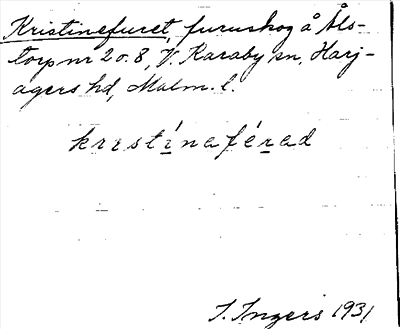 Kristinefuret, furuskog å Åls-
torp nr 2 o. 8, V. Karaby sn, Harj-
agers hd, Malm. l.
kristínaférad
I. Ingers 1931